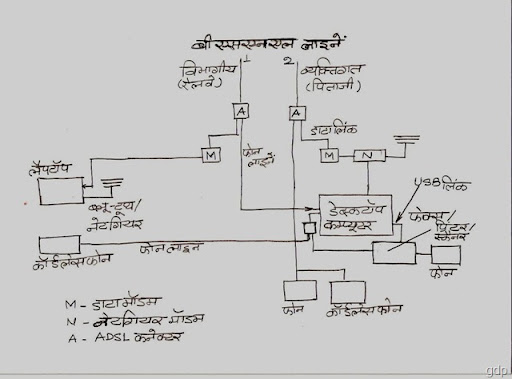 बी एस एन एल लाइनें
1
2
विभागीय
(रेलवे)
व्यक्तिगत
(पिताजी)
A
A
डाटा लिंक
M
फोन
लाइनें
M
N
लैपटॉप
ब्लू-टूथ/
नेटगियर
USB लिंक
डेस्कटॉप
कम्प्यूटर
फेक्स/
प्रिंटर/
स्केनर
फोन लाइन
कॉर्डलेस फोन
फोन
फोन
कॉर्डलेस फोन
M - डाटा मॉडम
N - नेटगियर मॉडम
A - ADSL कनेक्टर
gdp